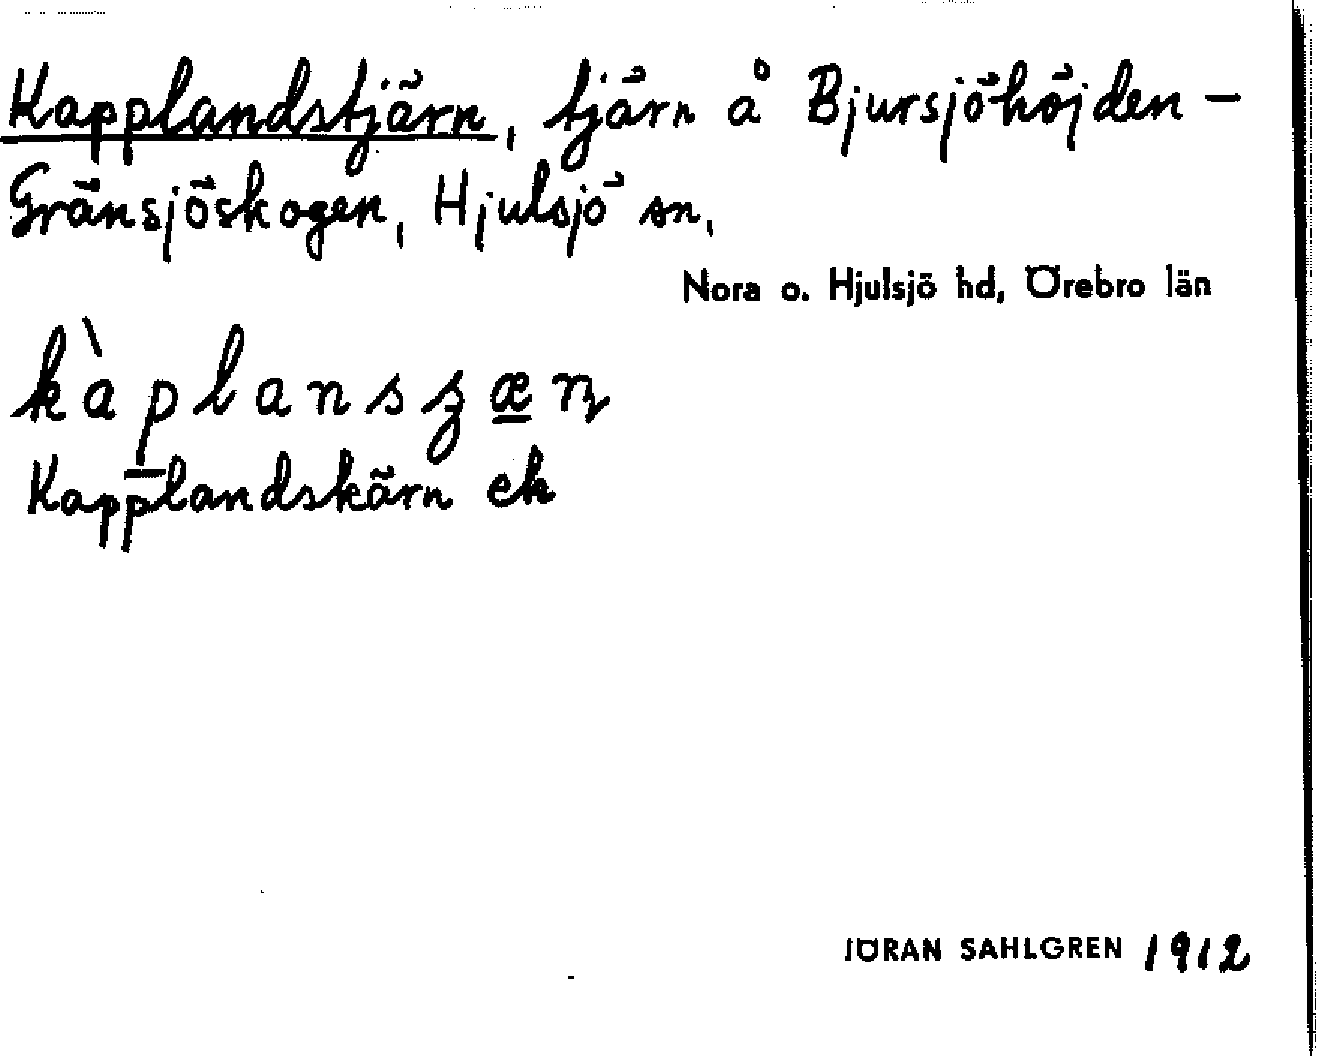 Kapplandstjärn, tjärn å Bjursjöhöjden -
Gränsjöskogen, Hjulsjö sn,
Nora o. Hjulsjö hd, Örebro län
Kapplandskärn ek
JÖRAN SAHLGREN 1912